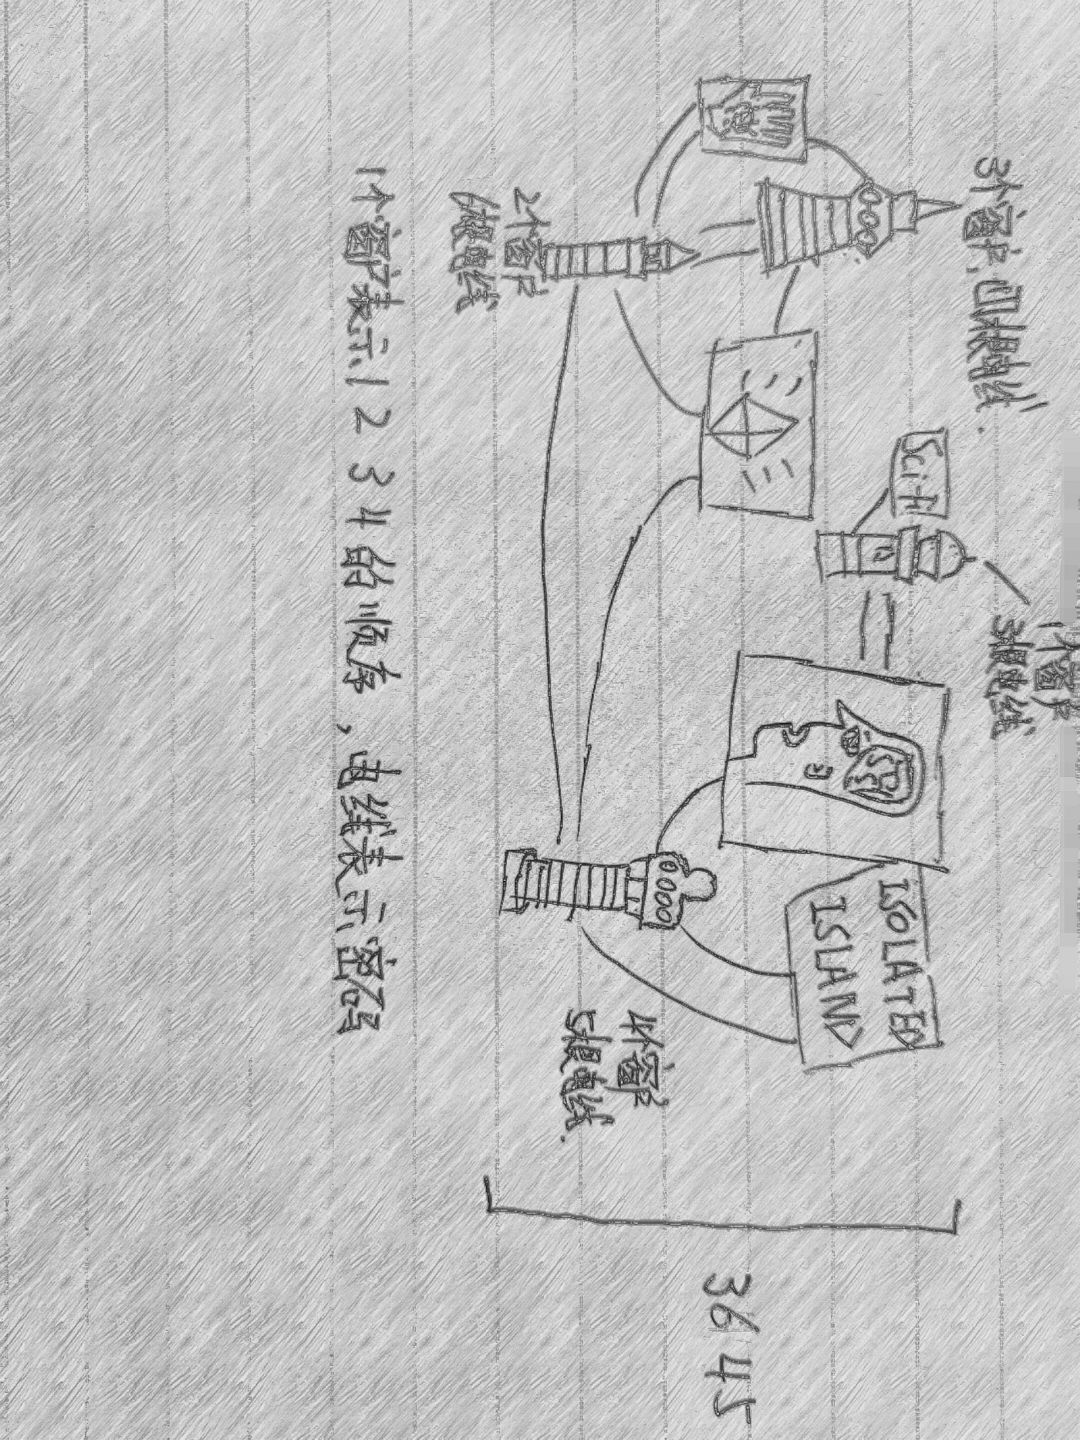 3个窗户,四根电线.
Sci-Fi
1个窗户
3根电线
ISOLATED
ISLAND
2个窗户
6根电线
4个窗户
5根电线.
1个窗户表示1 2 3 4的顺序,电线表示密码
3645